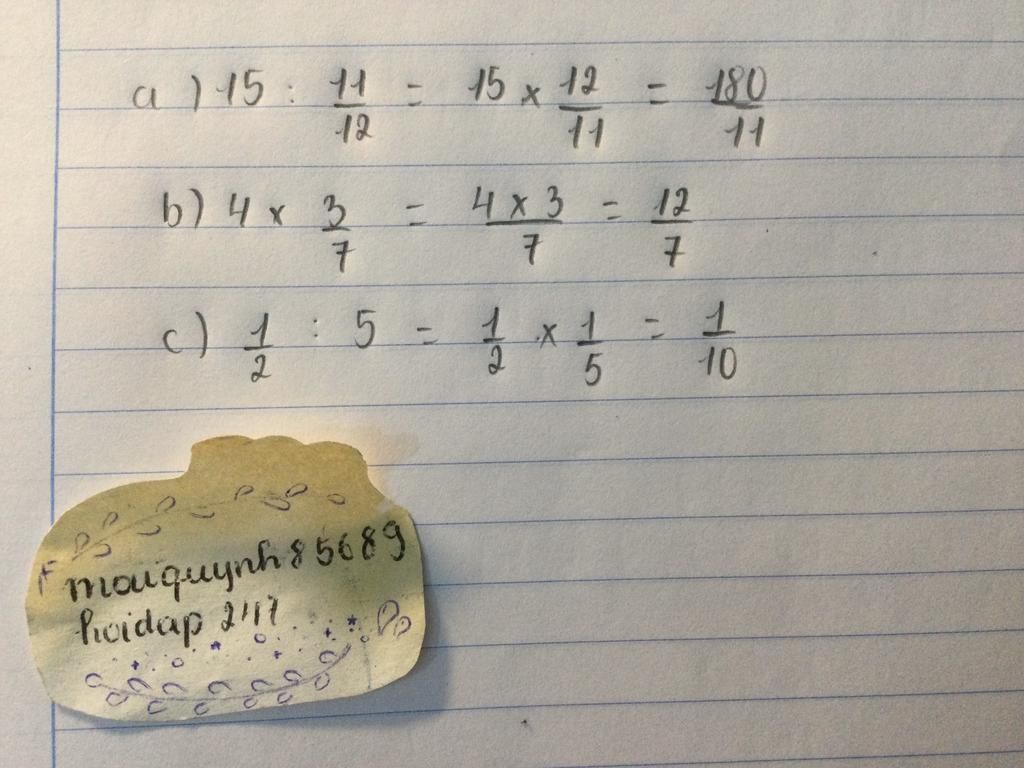 a) 15 : 11/12 = 15 x 12/11 = 180/11
b) 4 x 3/7 = 4 x 3/7 = 12/7
c) 1/2 : 5 = 1/2 x 1/5 = 1/10
maiquynh85689
hoidap 247